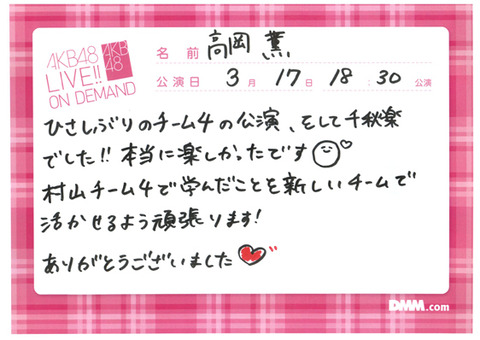 AKB48
LIVE!!
ON DEMAND
AKB
48
名前 高岡 薫
公演日 3月 17日 18:30 公演
ひさしぶりのチーム4の公演、そして千秋楽
でした!! 本当に楽しかったです
村山チーム4で学んだことを新しいチームで
活かせるよう頑張ります!
ありがとうございました
DMM.com